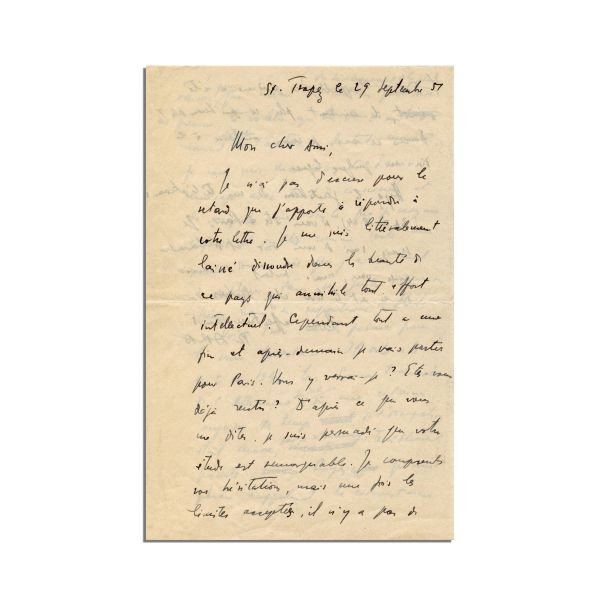 St. Tropez le 29 septembre 51
Mon cher Ami,
Je n'ai pas d'excuse pour le
retard que j'apporte à répondre à
votre lettre. Je me suis littéralement
laissé dissoudre dans la beauté de
ce pays qui annihile tout effort
intellectuel. Cependant tout a une
fin et après-demain je vais partir
pour Paris. Vous y verrai-je ? Etes vous
déjà rentré ? D'après ce que vous
me dites, je suis persuadé que votre
étude est remarquable. Je comprends
vos hésitations, mais une fois les
limites acceptées, il n'y a pas de